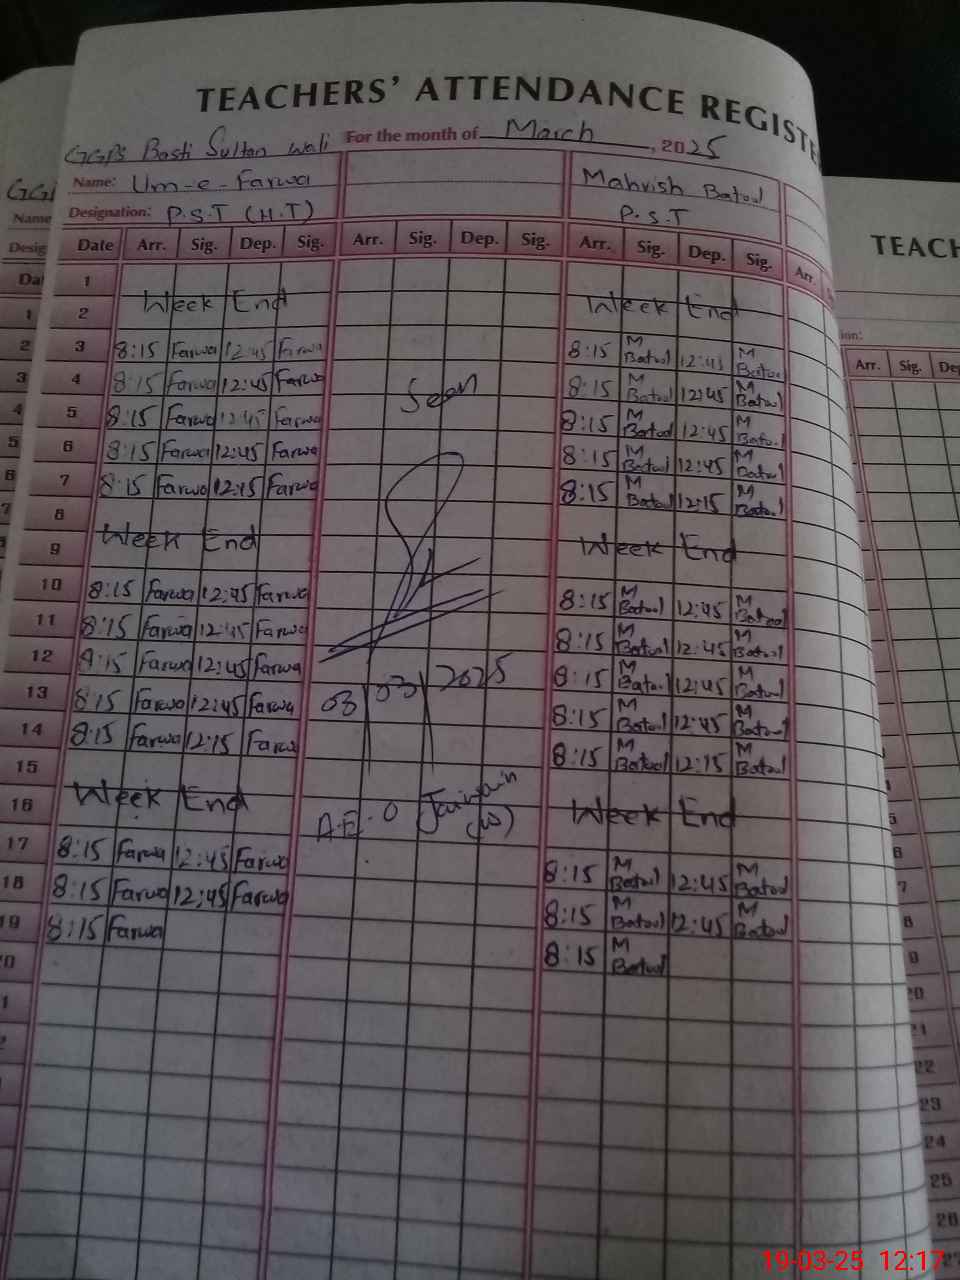 TEACHERS' ATTENDANCE REGISTE
GGPS Basti Sultan Wali For the month of March, 2025
Name: Um-e-Farwa Mahvish Batool
Designation: P.S.T (H.T) P.S.T
Date Arr. Sig. Dep. Sig. Arr. Sig. Dep. Sig. Arr. Sig. Dep. Sig. Arr.
1
2 Week End Week End
3 8:15 Farwa 12:45 Farwa 8:15 M Batool 12:45 M Batool
4 8:15 Farwa 12:45 Farwa Seen 8:15 M Batool 12:45 M Batool
5 8:15 Farwa 12:45 Farwa 8:15 M Batool 12:45 M Batool
6 8:15 Farwa 12:45 Farwa 8:15 M Batool 12:45 M Batool
7 8:15 Farwa 12:15 Farwa 8:15 M Batool 12:15 M Batool
8
9 Week End Week End
10 8:15 Farwa 12:45 Farwa 8:15 M Batool 12:45 M Batool
11 8:15 Farwa 12:45 Farwa 8:15 M Batool 12:45 M Batool
12 8:15 Farwa 12:45 Farwa 8:15 M Batool 12:45 M Batool
13 8:15 Farwa 12:45 Farwa 03/2025 8:15 M Batool 12:45 M Batool
14 8:15 Farwa 12:15 Farwa 8:15 M Batool 12:15 M Batool
15
16 Week End A.E.O (W) Week End
17 8:15 Farwa 12:45 Farwa 8:15 M Batool 12:45 M Batool
18 8:15 Farwa 12:45 Farwa 8:15 M Batool 12:45 M Batool
19 8:15 Farwa 8:15 M Batool
TEACH
ion:
Arr. Sig. De
22
23
24
25
26
GG
Name
Desig
Da
1
2
3
4
5
6
7
19-03-25 12:17